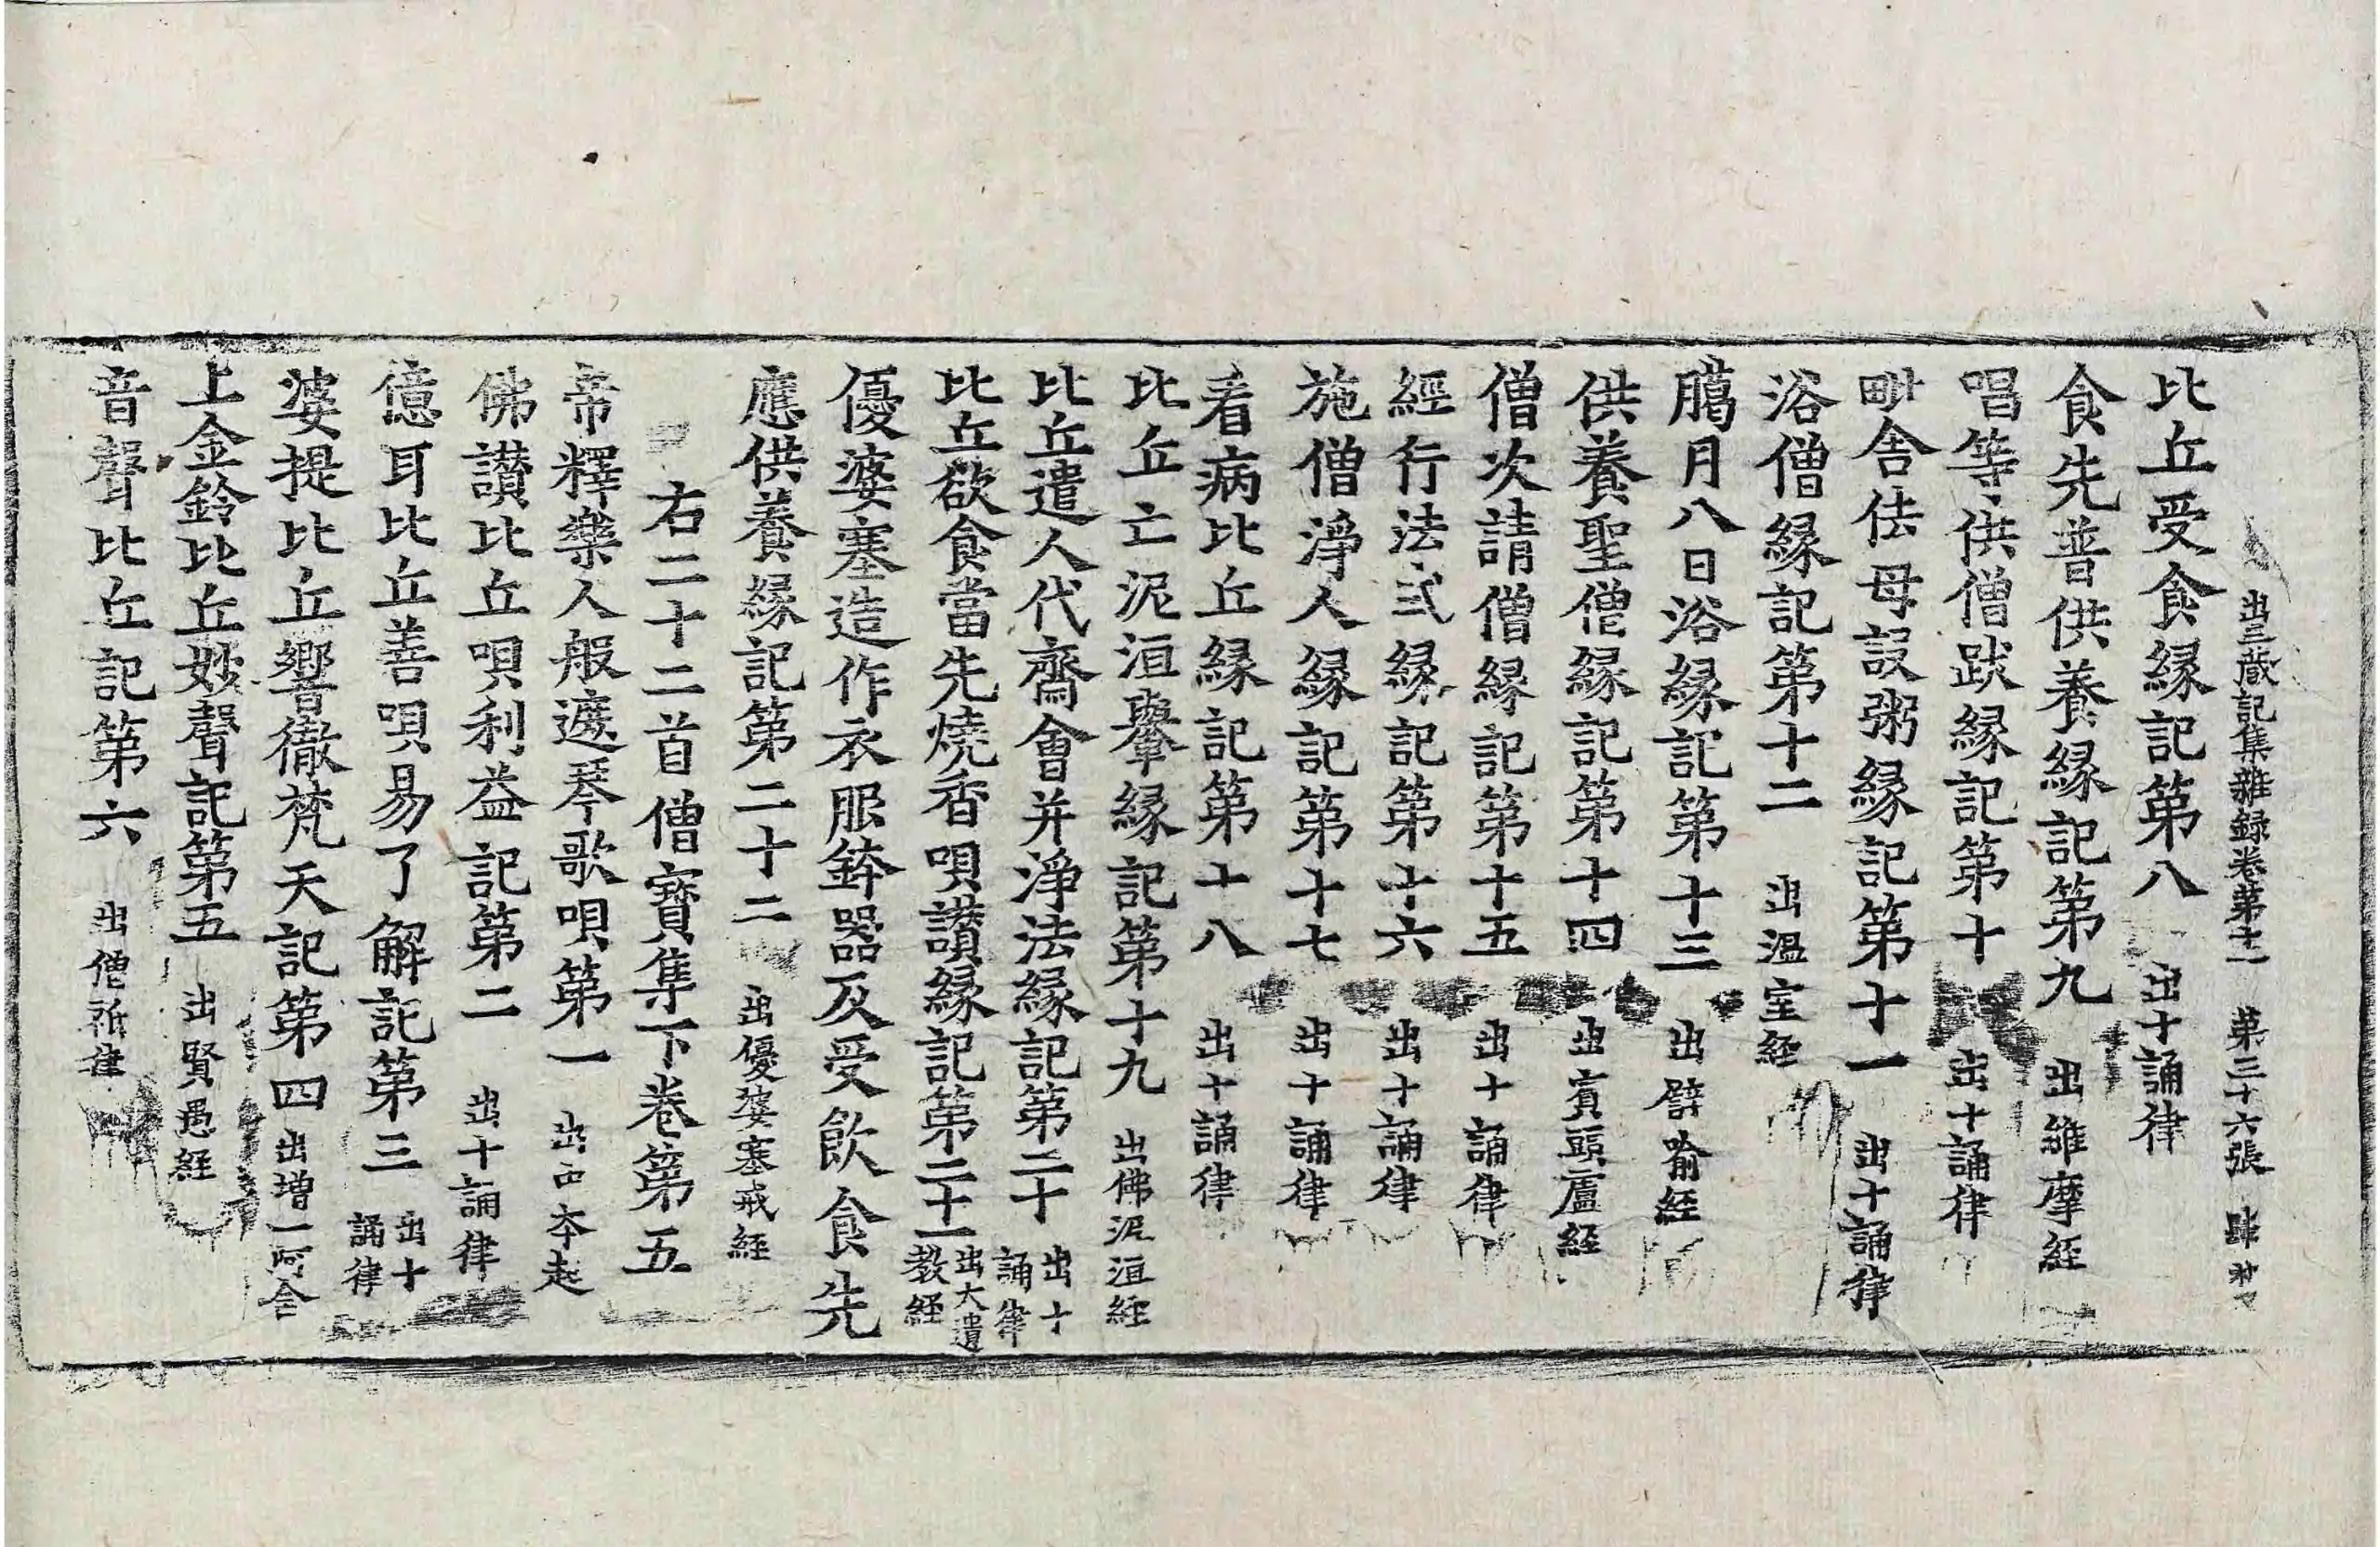 出三藏記集雜録卷第十二 第三十六張
比丘受食縁記第八 出十誦律
食先普供養縁記第九 出維摩經
唱等供僧跋縁記第十 出十誦律
毗舍佉母設粥縁記第十一 出十誦律
浴僧縁記第十二 出温室経
臈月八日浴縁記第十三 出譬喻経
供養聖僧縁記第十四 出賓頭盧経
僧次請僧縁記第十五 出十誦律
經行法式縁記第十六 出十誦律
施僧淨人縁記第十七 出十誦律
看病比丘縁記第十八 出十誦律
比丘亡泥洹轝縁記第十九 出佛泥洹経
比丘遣人代齋會并淨法縁記第二十 出十誦律
比丘欲食當先燒香唄讃縁記第二十一 出大遺教経
優婆塞造作衣服鉢器及受飲食先
應供養縁記第二十二 出優婆塞戒経
右二十二首僧寶集下卷第五
帝釋樂人般遮琴歌唄第一 出中本起
佛讃比丘唄利益記第二 出十誦律
億耳比丘善唄易了解記第三 出十誦律
婆提比丘響徹梵天記第四 出増一阿含
上金鈴比丘妙聲記第五 出賢愚経
音聲比丘記第六 出僧祇律